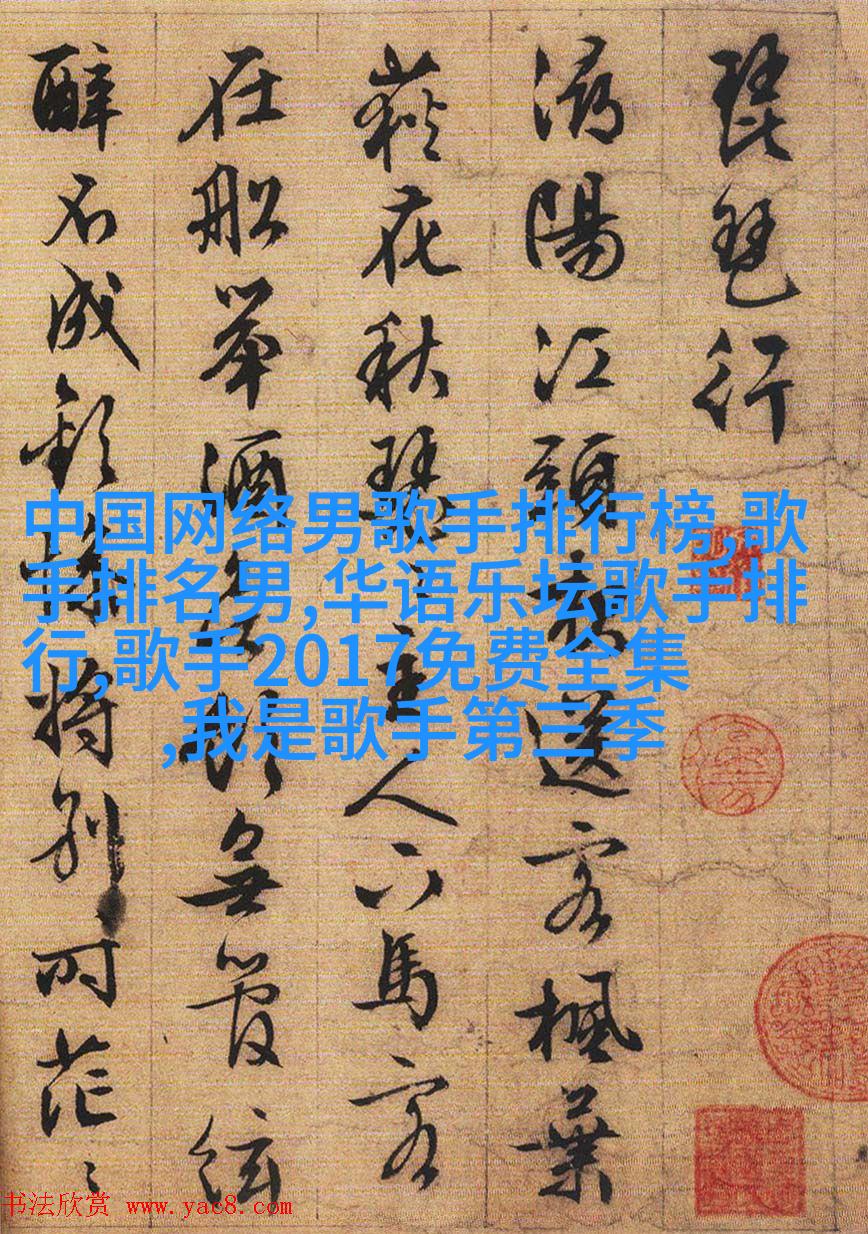 琵琶行
潯陽江頭夜送客楓葉
荻花秋瑟〻主人下馬客
在船舉酒欲飲無管絃
醉不成歡慘將別時茫〻
中国网络男歌手排行榜,歌
手排名男,华语乐坛歌手排
行,歌手2017免费全集
,我是歌手第三季
书法欣赏 www.yac8.com